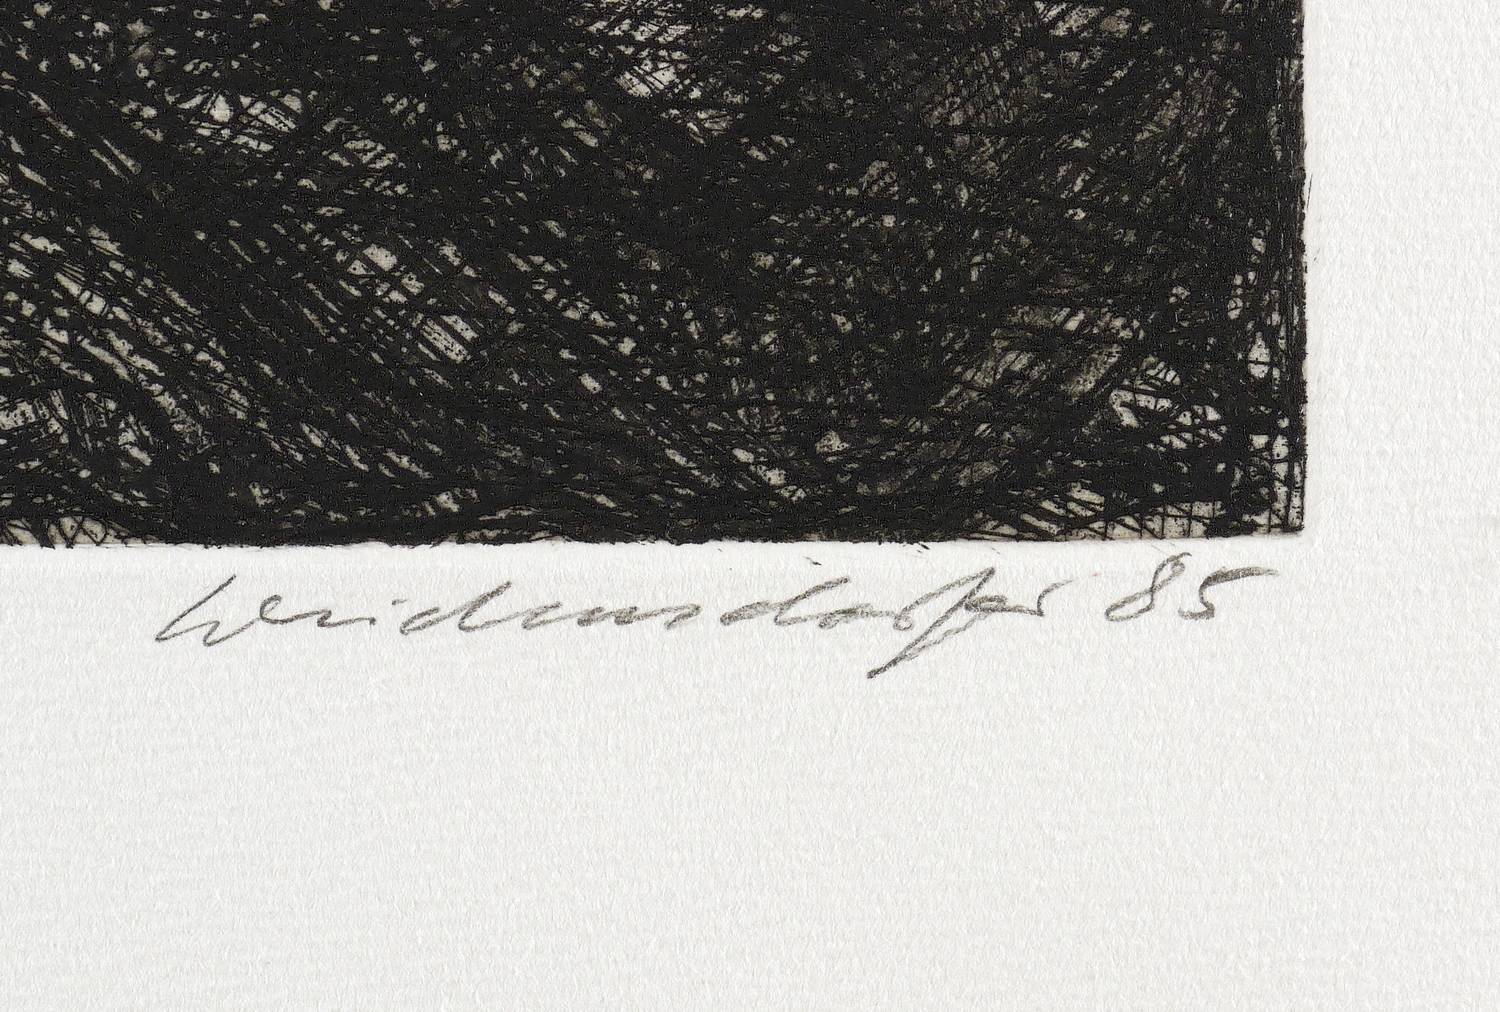 Weidensdorfer 85